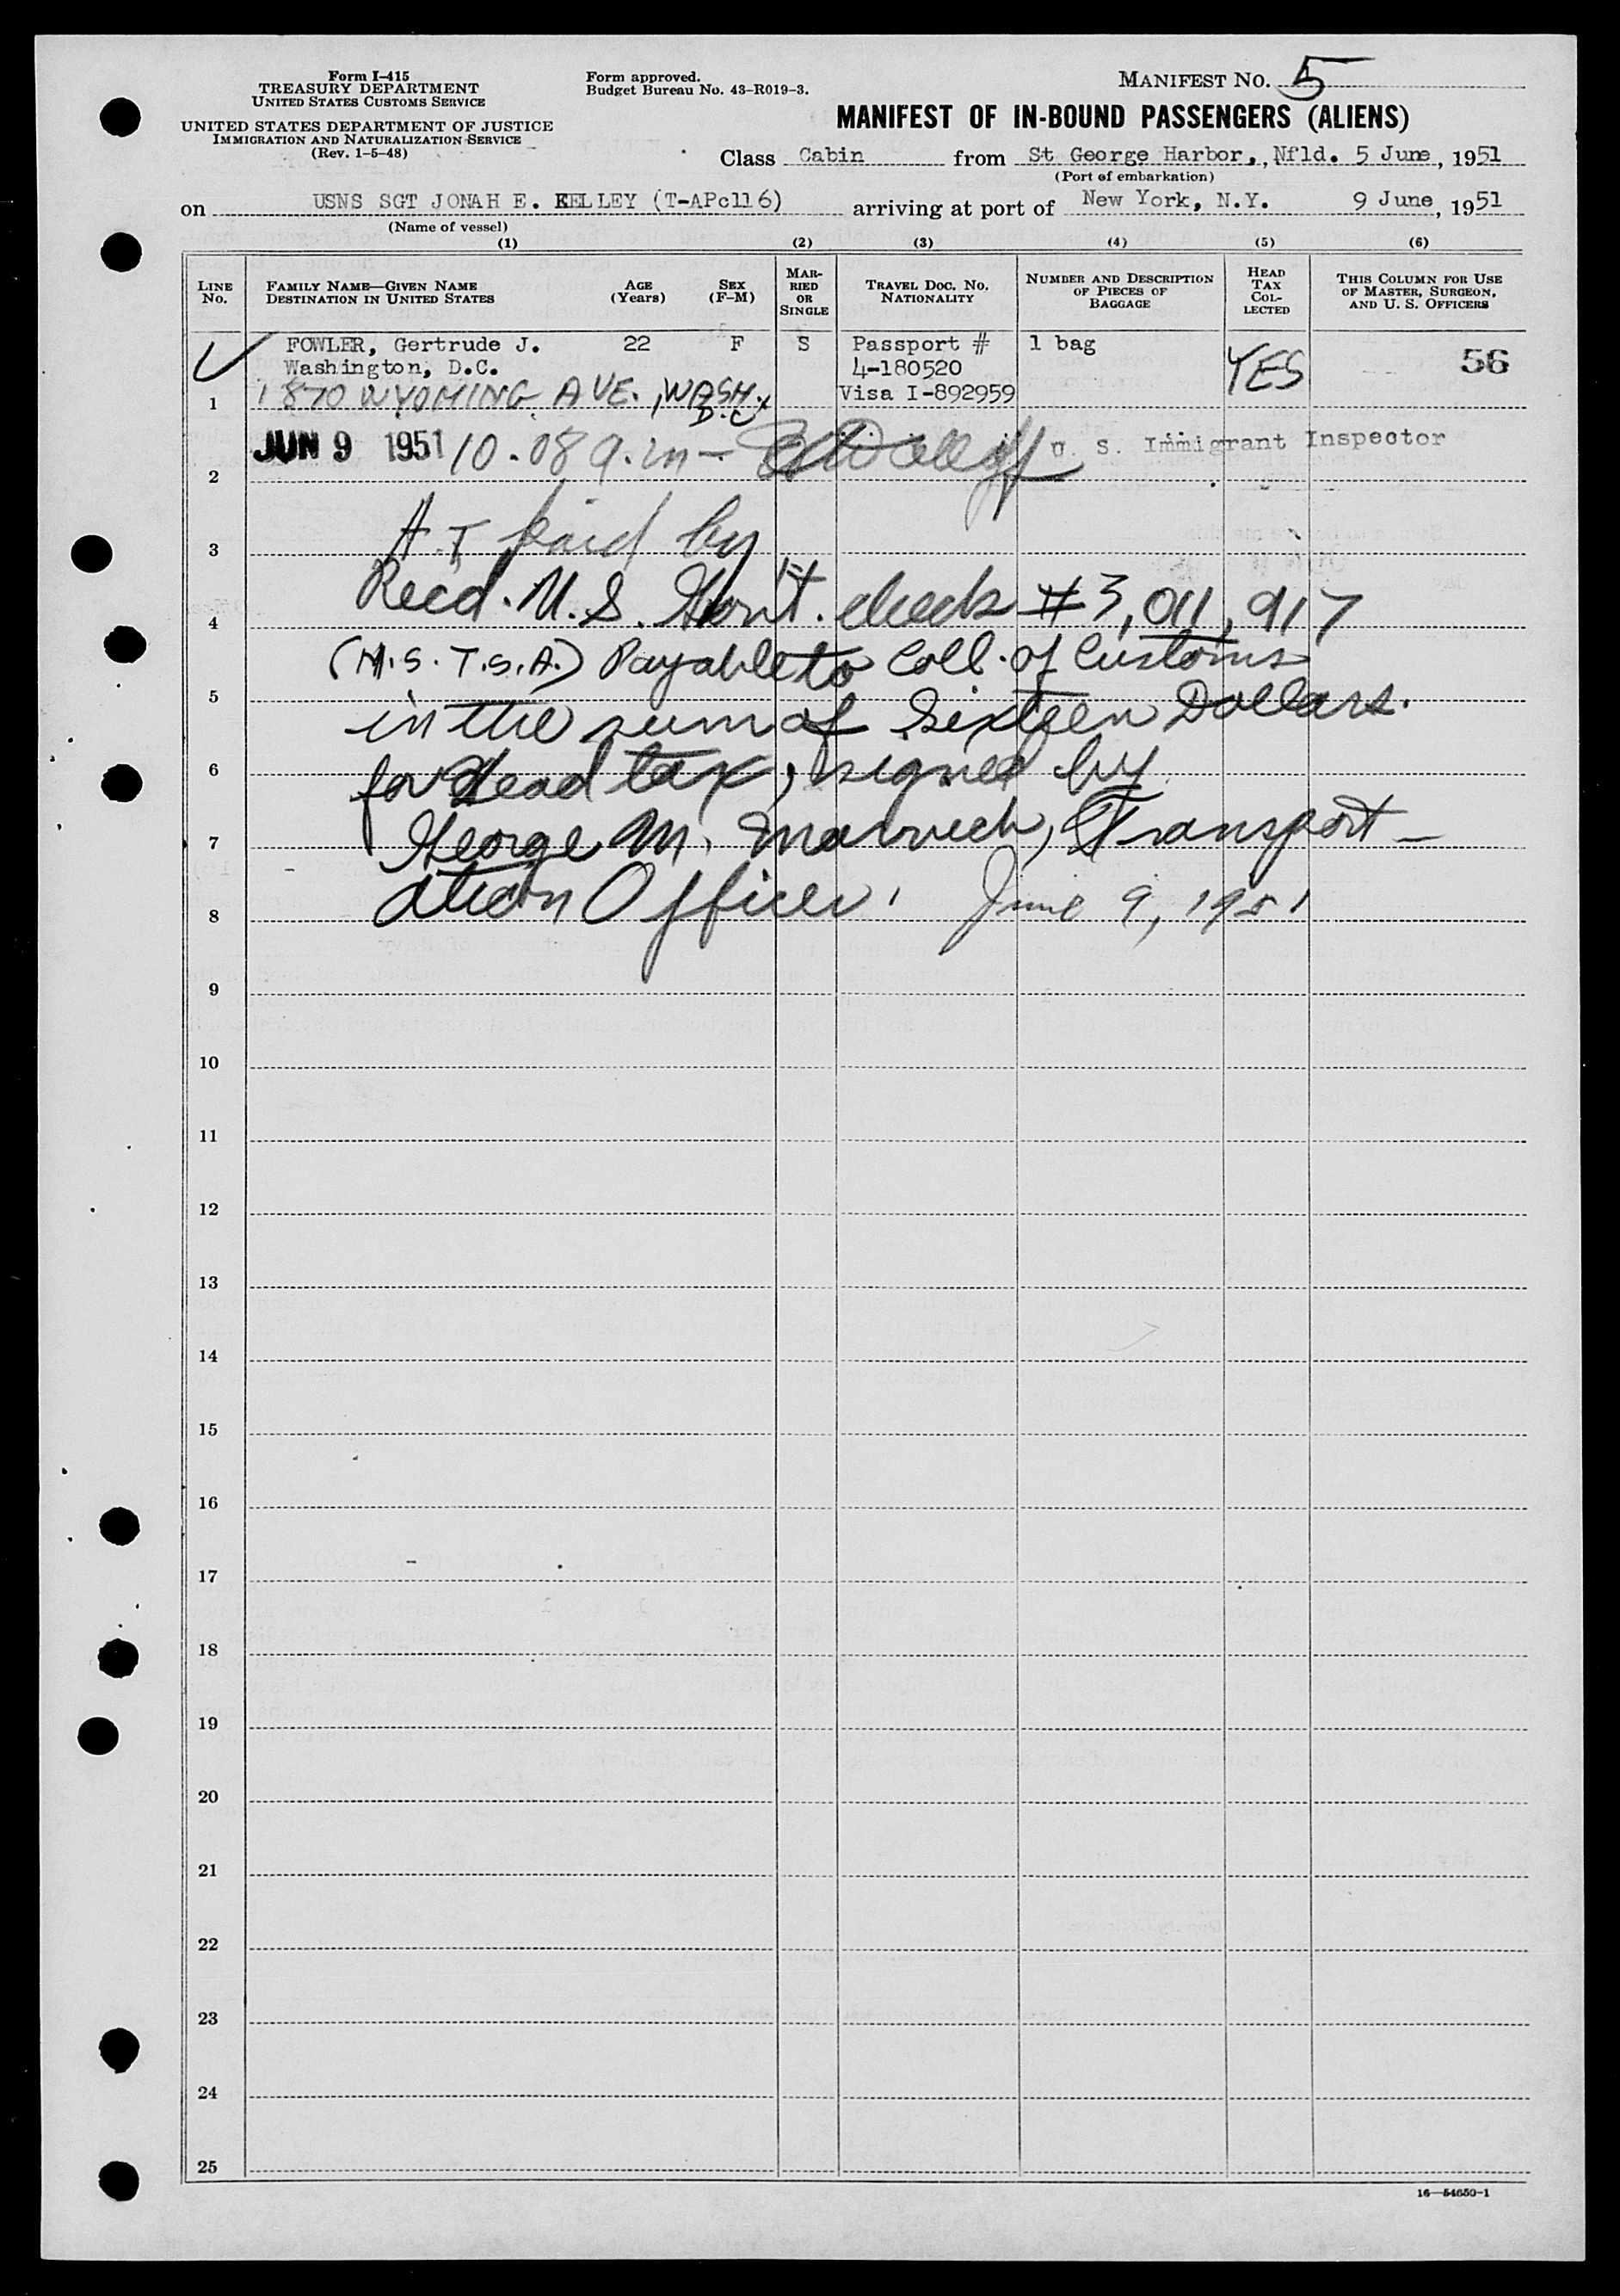 Form I-415
TREASURY DEPARTMENT
UNITED STATES CUSTOMS SERVICE
UNITED STATES DEPARTMENT OF JUSTICE
IMMIGRATION AND NATURALIZATION SERVICE
(Rev. 1-5-48)
Form approved.
Budget Bureau No. 43-R019-3.
MANIFEST NO. 5
MANIFEST OF IN-BOUND PASSENGERS (ALIENS)
Class Cabin from St George Harbor, Nfld. 5 June, 1951
(Port of embarkation)
on USNS SGT JONAH E. KELLEY (T-APc116) arriving at port of New York, N.Y. 9 June, 1951
(Name of vessel)
(1) (2) (3) (4) (5) (6)
LINE NO.
FAMILY NAME—GIVEN NAME
DESTINATION IN UNITED STATES
AGE (Years)
SEX (F-M)
MARRIED OR SINGLE
TRAVEL DOC. NO.
NATIONALITY
NUMBER AND DESCRIPTION OF PIECES OF BAGGAGE
HEAD TAX COLLECTED
THIS COLUMN FOR USE OF MASTER, SURGEON, AND U. S. OFFICERS
FOWLER, Gertrude J. 22 F S Passport # 1 bag
Washington, D.C. 4-180520 YES 56
1 1870 WYOMING AVE., WASH. D.C. Visa I-892959
JUN 9 1951 10.08 a.m — U. S. Immigrant Inspector
2
H.T paid by
3
Recd. U.S. Gov't. check #3,011,917
4
(M.S.T.S.A.) Payable to Coll. of Customs
5
in the sum of Sixteen Dollars.
6
for Head tax, signed by
7
George M. Transport-
8
ation Officer, June 9, 1951
9
10
11
12
13
14
15
16
17
18
19
20
21
22
23
24
25
16—54650-1